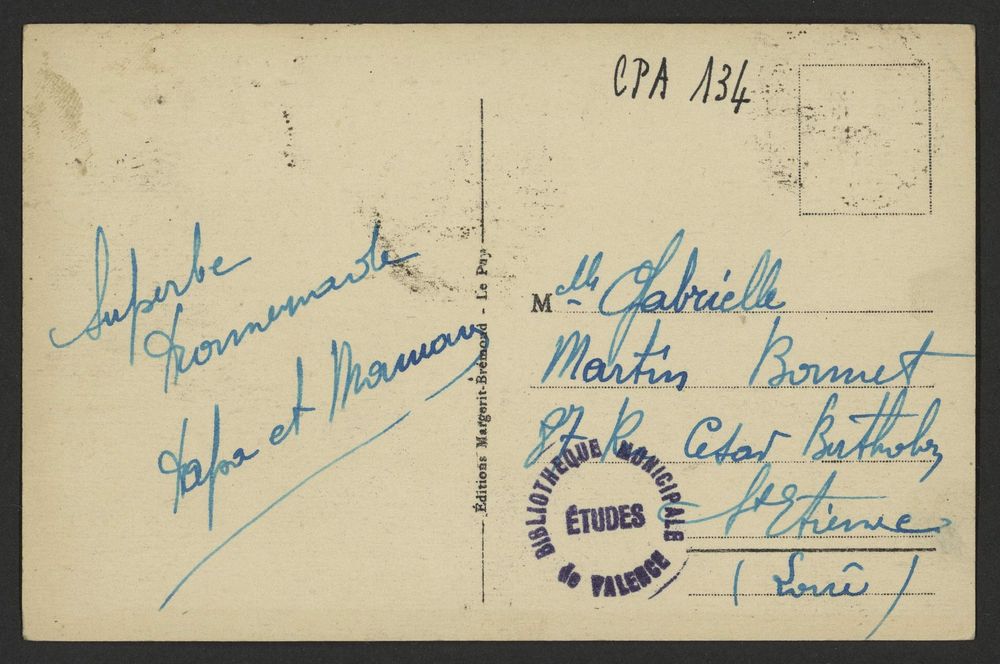 CPA 134
Superbe
promenade
Papa et Maman
Éditions Margerit-Brémond - Le Puy
Mlle Gabrielle
Martin Bonnet
Rue César Bertholon
St Etienne
(Loire)
BIBLIOTHEQUE MUNICIPALE
ÉTUDES
de VALENCE